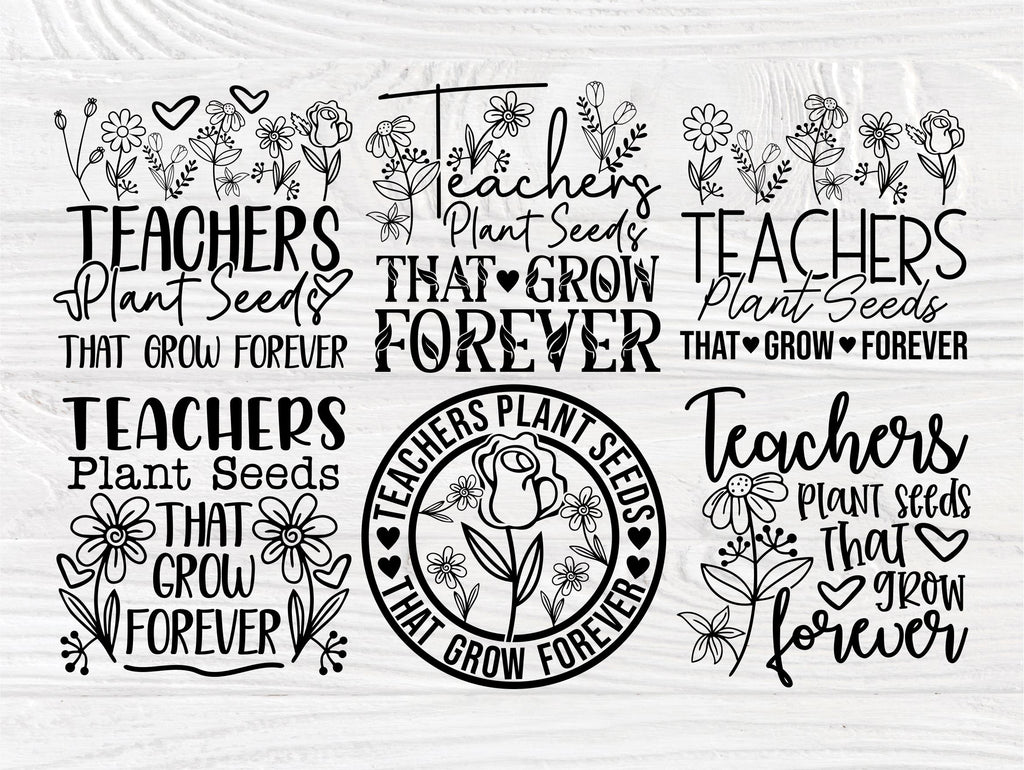 TEACHERS
Plant Seeds
THAT GROW FOREVER
Teachers
Plant Seeds
THAT GROW
FOREVER
TEACHERS
Plant Seeds
THAT GROW FOREVER
TEACHERS
Plant Seeds
THAT
GROW
FOREVER
TEACHERS PLANT SEEDS
THAT GROW FOREVER
Teachers
PLANT SeeDS
THaT
GROW
forever